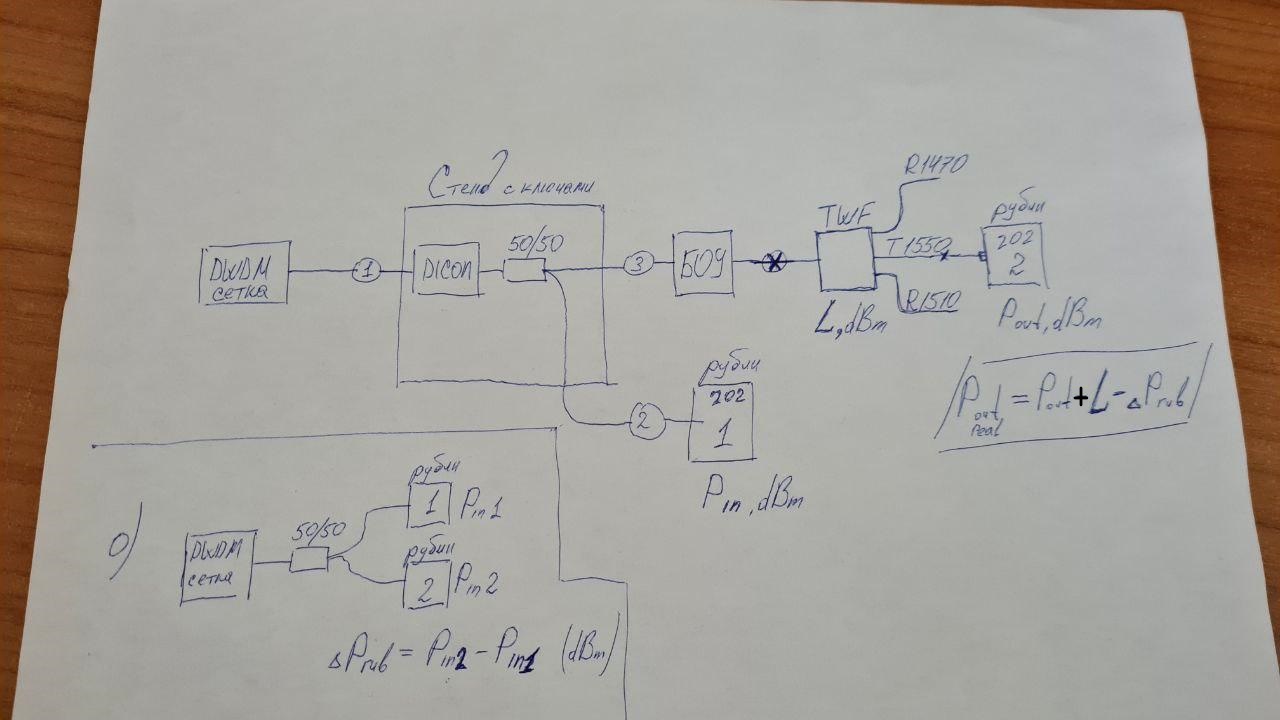 Стенд с ключами
DWDM
сетка
1
DICON
50/50
3
БОУ
TWF
L, dBm
R1470
T1550
R1510
рубин
202
2
Pout, dBm
2
рубин
202
1
Pin, dBm
Pout Реал = Pout + L - ΔPrub
0)
DWDM
сетка
50/50
рубин
1 Pin1
рубин
2 Pin2
ΔPrub = Pin2 - Pin1 (dBm)